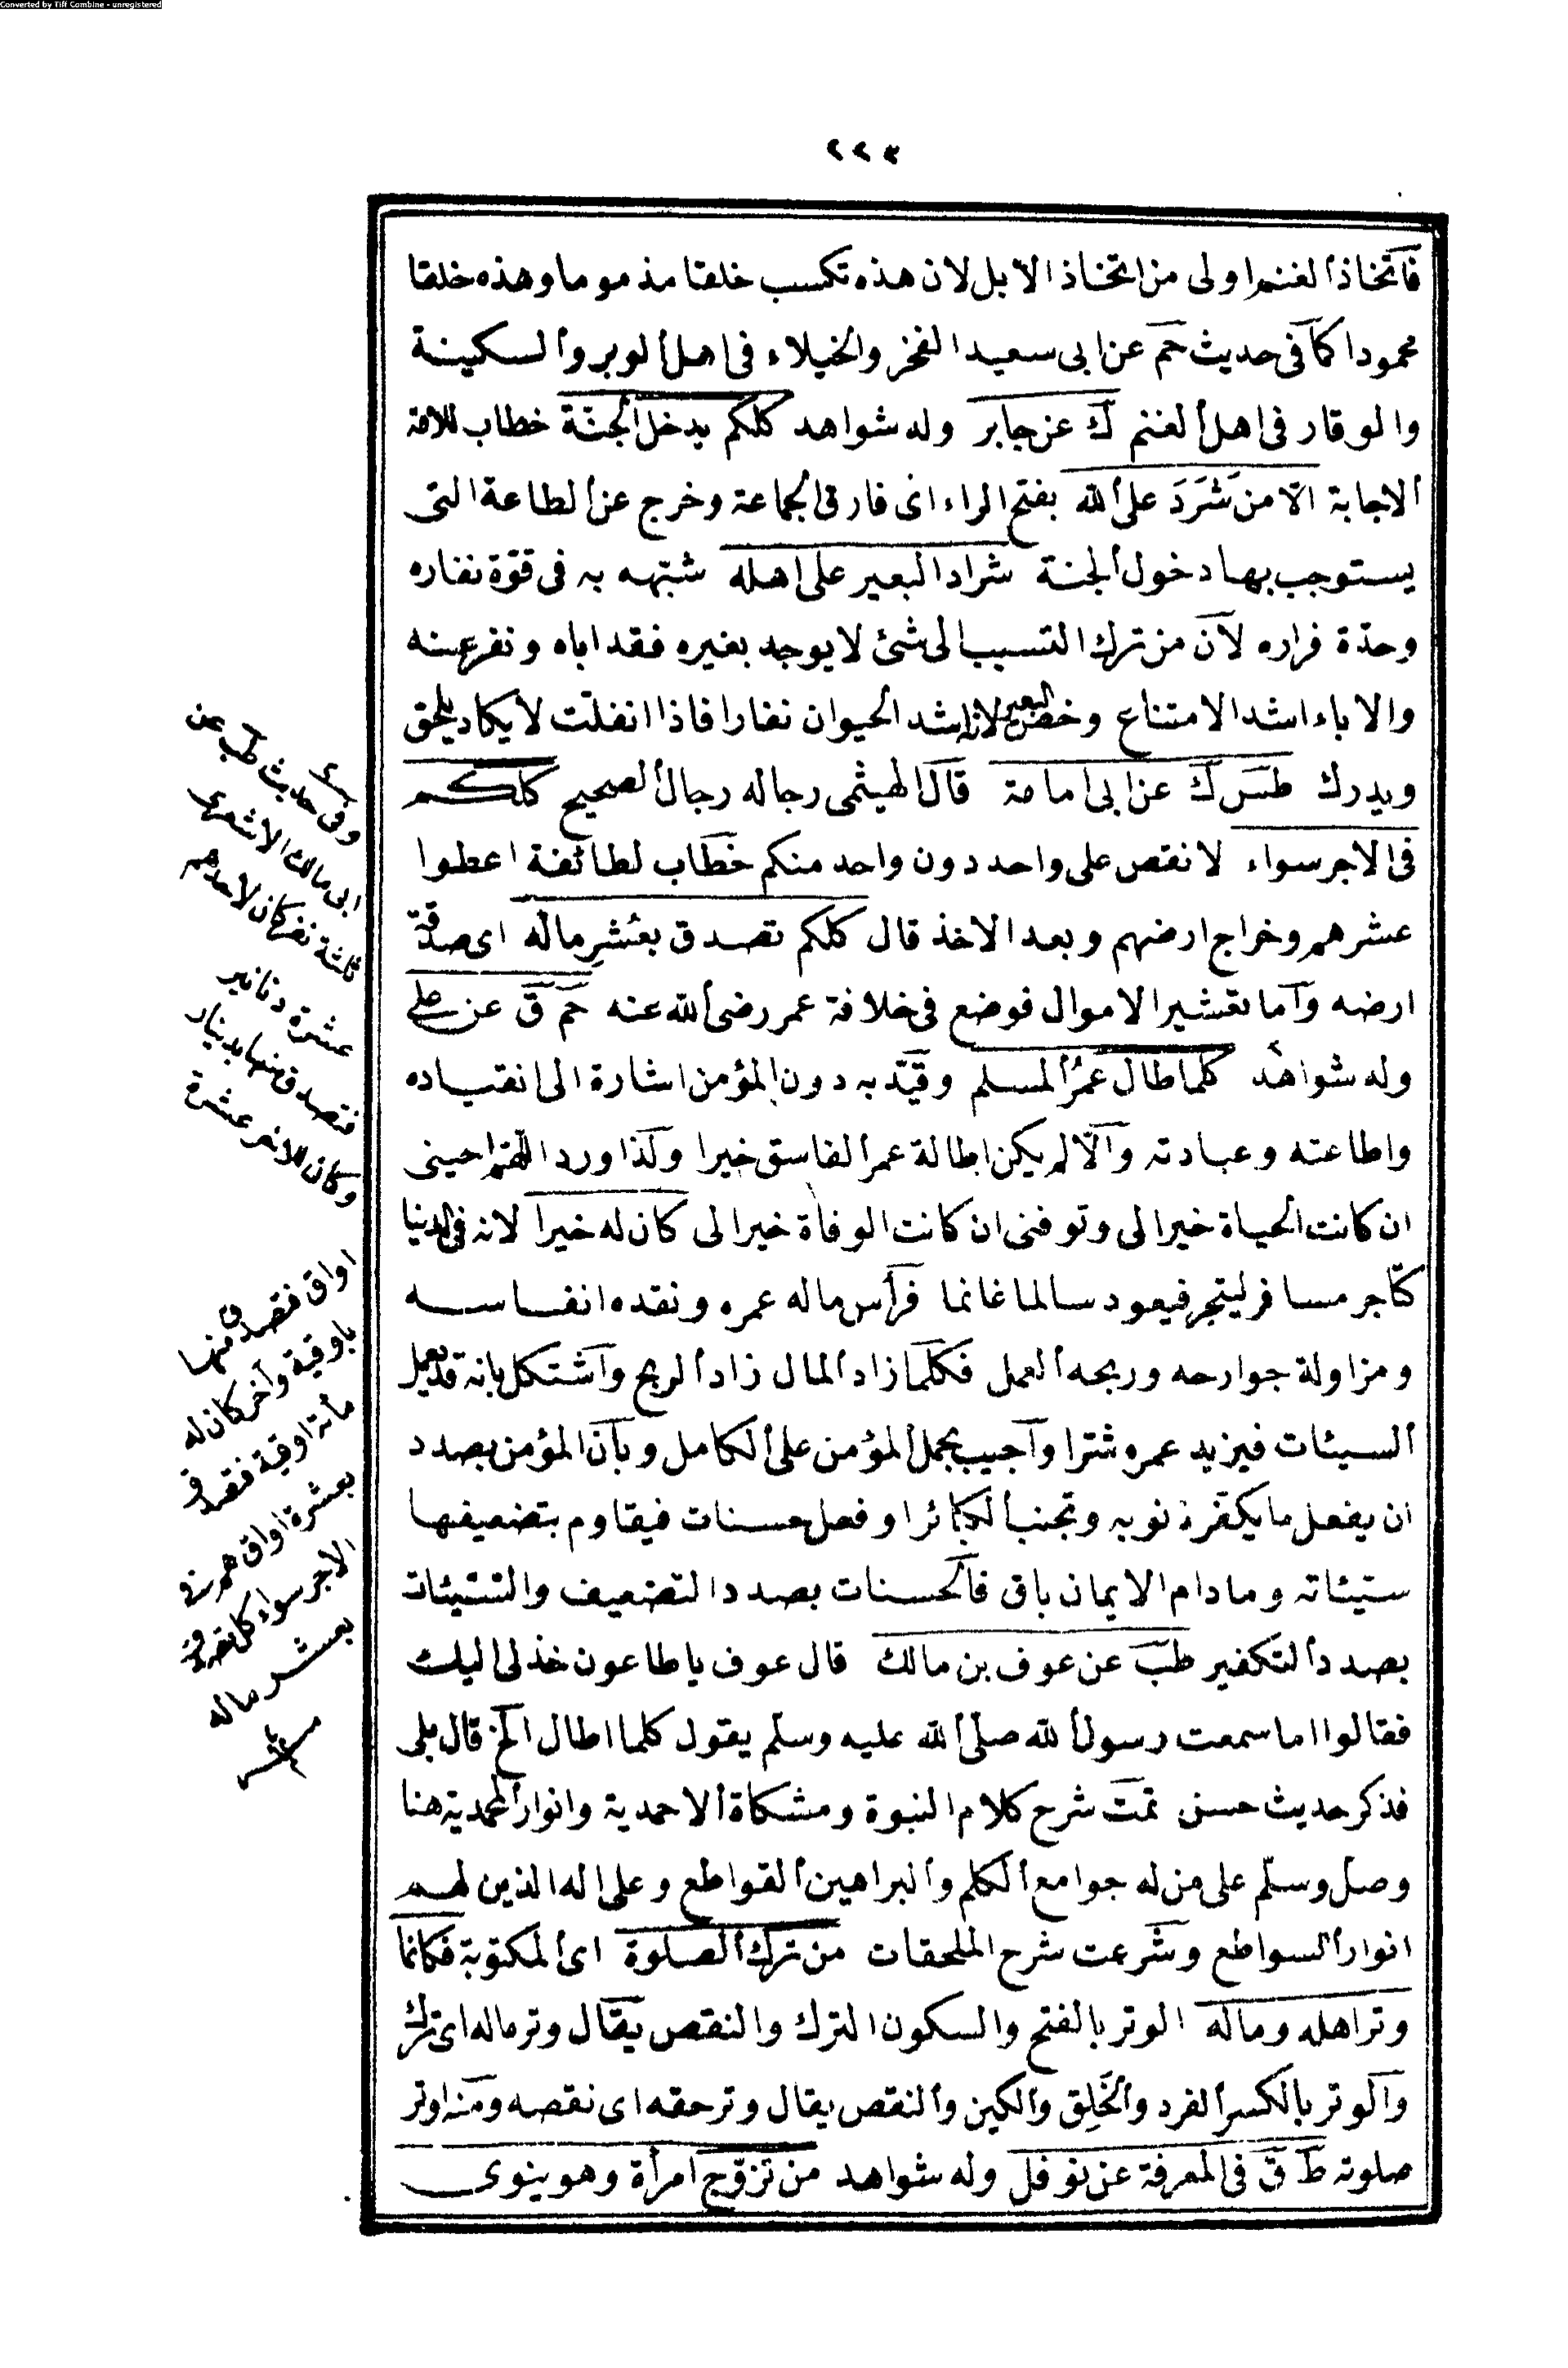 Converted by Tiff Combine - unregistered
٢٢٣
فاتخاذ الغنم اولى من اتخاذ الابل لان هذه تكسب خلقا مذموما وهذه خلقا
محمودا كما فى حديث حم عن ابى سعيد الفخر والخيلاء فى اهل الوبر والسكينة
والوقار فى اهل الغنم ك عن جابر وله شواهد كلكم يدخل الجنة خطاب للامة
الاجابة الا من شَرَدَ على الله بفتح الراء اى فارق الجماعة وخرج عن الطاعة التى
يستوجب بها دخول الجنة شراد البعير على اهله شبّهه به فى قوّة نفاره
وحدّة فراره لان من ترك التسبب الى شئ لا يوجد بغيره فقد اباه ونفر عنه
والاباء اشد الامتناع وخص البعير لانه اشد الحيوان نفارا فاذا انفلت لا يكاد يلحق
ويدرك طس ك عن ابى امامة قال الهيثمى رجاله رجال الصحيح كلكم
فى الاجر سواء لا نقص على واحد دون واحد منكم خطاب لطائفة اعطوا
عشرهم وخراج ارضهم وبعد الاخذ قال كلكم تصدق بعُشرِ ماله اى صدقة
ارضه واما تعشير الاموال فوضع فى خلافة عمر رضى الله عنه حم ق عن على
وله شواهد كلما طال عمُرُ المسلم وقيّد به دون المؤمن اشارة الى انقياده
واطاعته وعبادته والّا لم يكن اطالة عمر الفاسق خيرا ولذا ورد اللهم احينى
ان كانت الحياة خيرا لى وتوفنى ان كانت الوفاة خيرا لى كان له خيرا لانه فى الدنيا
كتاجر مسافر ليتجر فيعود سالما غانما فرأس ماله عمره ونقده انفاسه
ومزاولة جوارحه وربحه العمل فكلما زاد المال زاد الربح واشتكل بانه قد يعمل
السيئات فيزيد عمره شترا واجيب بحمل المؤمن على الكامل وبان المؤمن بصدد
ان يفعل ما يكفر ذنوبه وتجنب الكبائر او فعل حسنات فيقاوم بتضعيفها
سيّئاته وما دام الايمان باق فالحسنات بصدد التضعيف والسّيّئات
بصدد التكفير طب عن عوف بن مالك قال عوف يا طاعون خذ لى اليك
فقالوا اما سمعت رسول الله صلّى الله عليه وسلّم يقول كلما اطال الخ قال بلى
فذكر حديث حسن تمت شرح كلام النبوة ومشكاة الاحمدية وانوار المحمدية هنا
وصل وسلّم على من له جوامع الكلم والبراهين القواطع وعلى اله الذين لهم
انوار السواطع وشرعت شرح الملحقات من ترك الصلوة اى المكتوبة فكانما
وتر اهله وماله الوتر بالفتح والسكون الترك والنقص يقال وتر ماله اى ترك
والوتر بالكسر الفرد والخَلِق والكين والنقص يقال وتر حقه اى نقصه ومنه اوتر
صلوته ط ق فى المعرفة عن نوفل وله شواهد من تزوّج امرأة وهو ينوى
وفى حديث طب عن
ابى مالك الاشعرى
ثلثة نفر كان لاحدهم
عشرة دنانير
فتصدق منها بدينار
وكان للاخر عشرة
اواق فتصدق منها
باوقية واخر كان له
مأئة اوقية فتصدق
بعشرة اواق هم فى
الاجر سواء كل تصدق
بعشر ماله